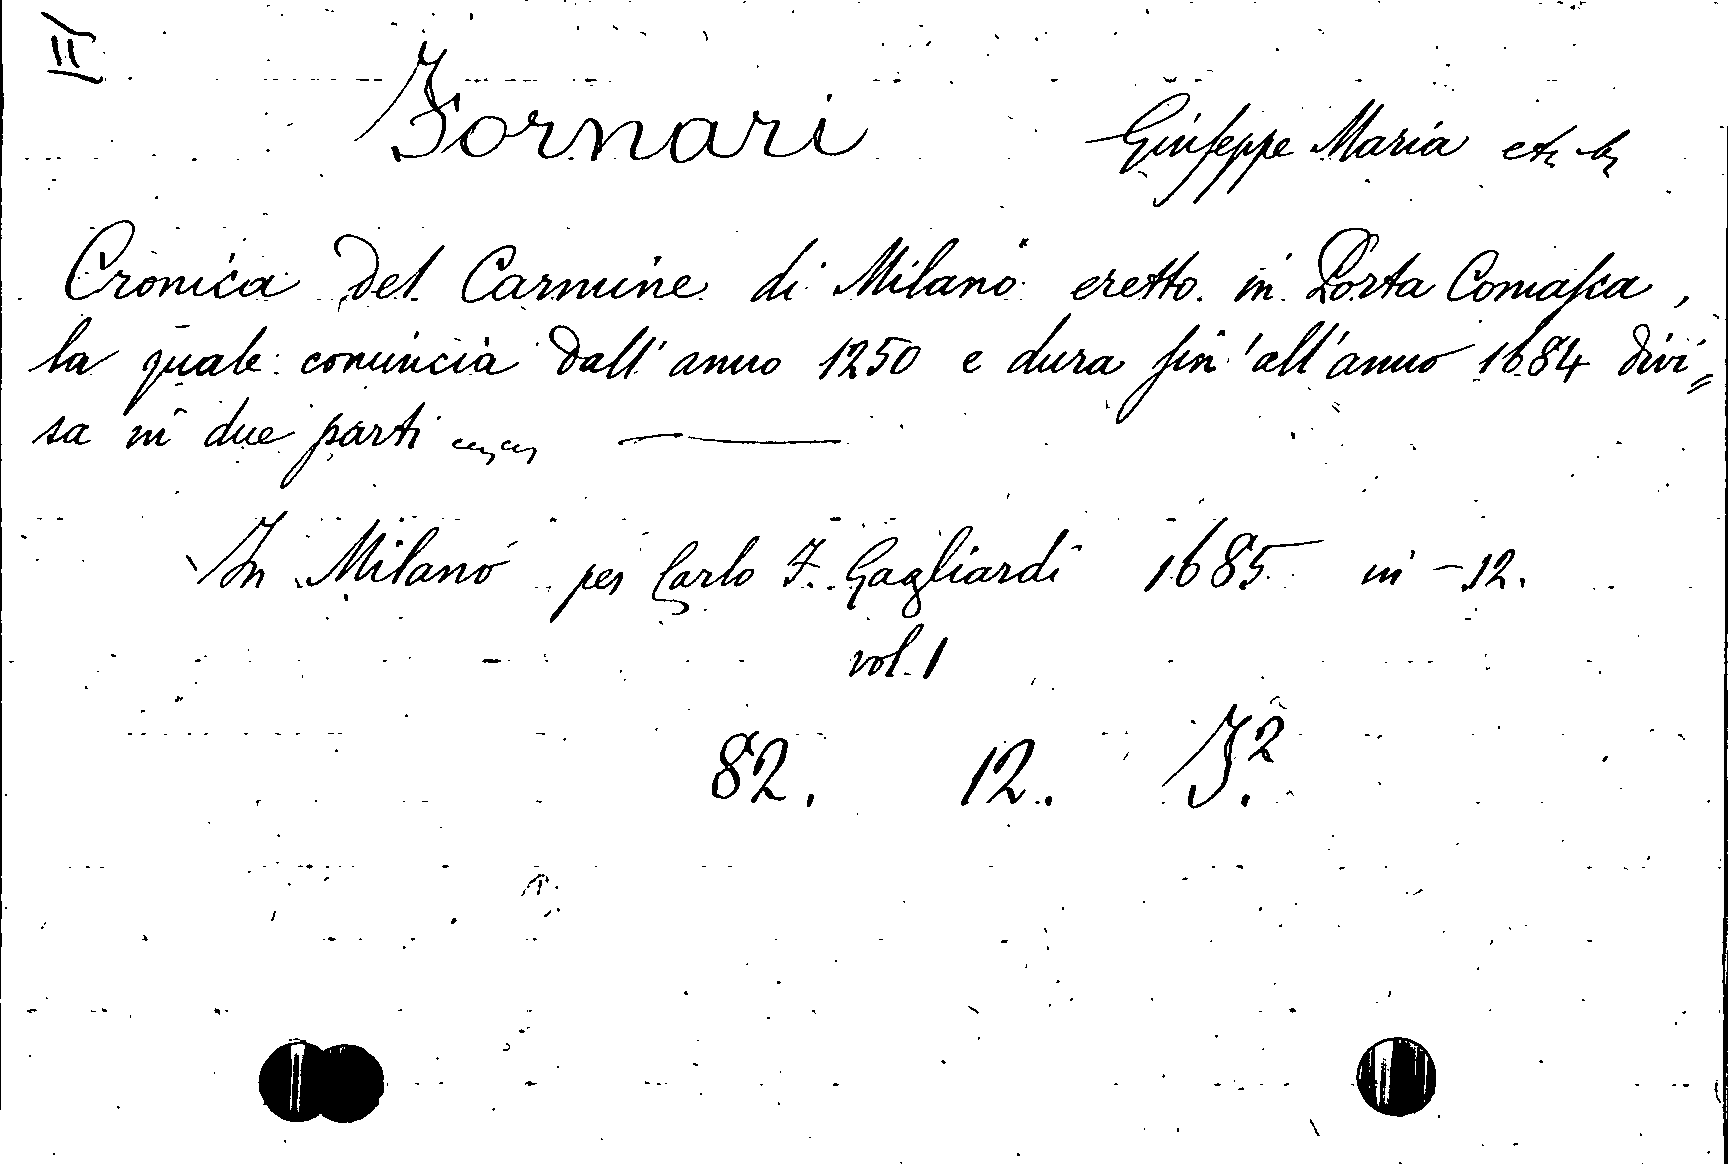 II)
Fornari Giuseppe Maria etc
Cronica del Carmine di Milano eretto in Porta Comasca,
la quale comincia dall'anno 1250 e dura fin'all'anno 1684 divi=
sa in due parti
In Milano per Carlo F. Gagliardi 1685 in-12.
vol. 1
82. 12. F.2